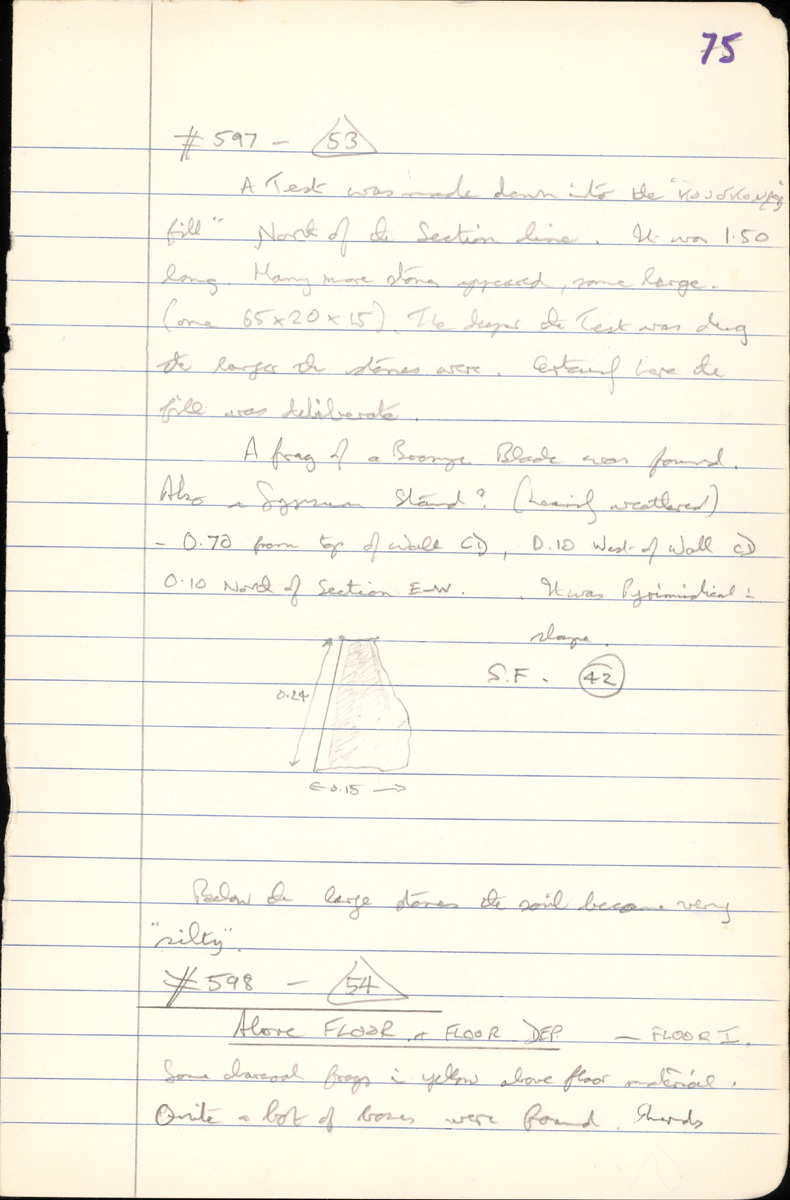 75
# 597 - 53
A Test was made down into the "κουσκουρας
fill" North of the Section line. It was 1.50
long. Many more stones appeared, some large.
(one 65x20x15). The deeper the Test was dug
the larger the stones were. Certainly here the
fill was deliberate.
A frag of a Bronze Blade was found.
Also a Gypsum Stand? (heavily weathered)
- 0.70 from top of Wall CD, 0.10 West of Wall CD
0.10 North of Section E-W. It was Pyrimidical in
shape.
S.F. 42
0.24
0.15
Below the large stones the soil became very
"silty".
# 598 - 54
Above FLOOR + FLOOR DEP. - FLOOR I.
Some charcoal frags in yellow above floor material.
Quite a lot of bones were found. Sherds